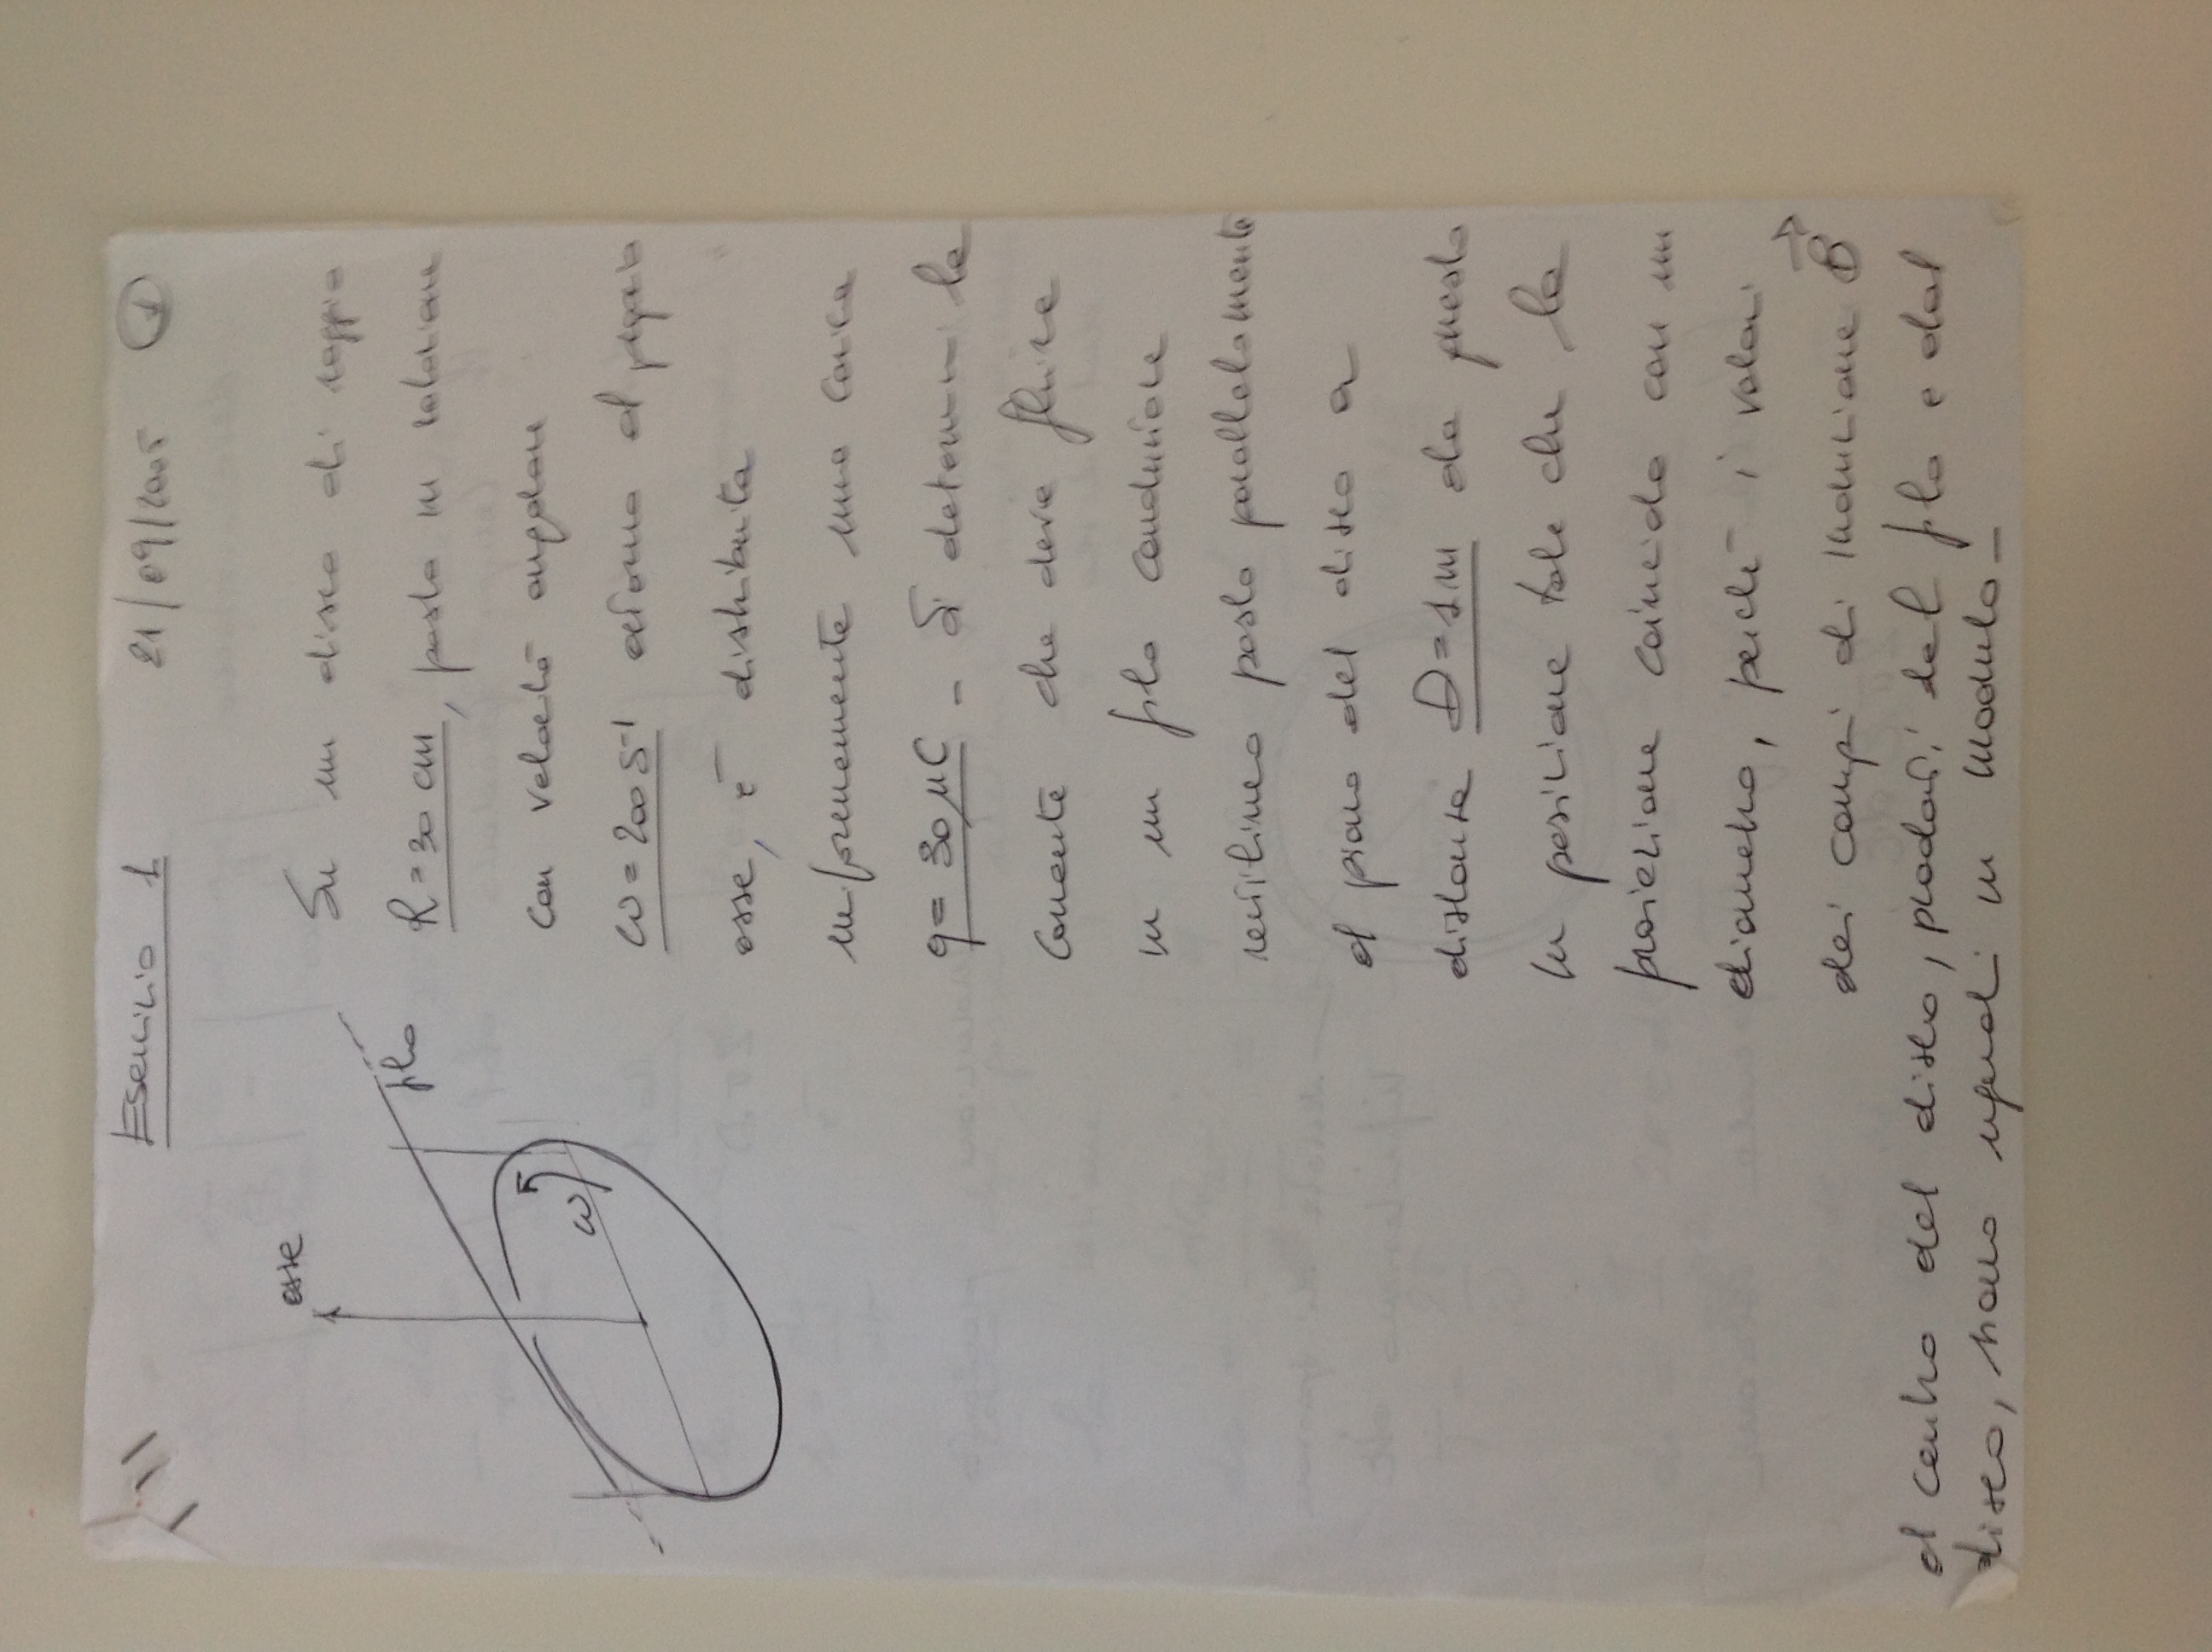 Esercizio 1 21/09/2005 1
asse
filo
ω
Su un disco di raggio
R = 30 cm, posto in rotazione
con velocità angolare
ω = 200 s⁻¹ attorno al proprio
asse, è distribuita
uniformemente una carica
q = 30 μC - Si determini la
corrente che deve fluire
in un filo conduttore
rettilineo posto parallelamente
al piano del disco a
distanza D = 1 m da questo
in posizione tale che la
proiezione coincida con un
diametro, perché i valori
dei campi di induzione B⃗
al centro del disco, prodotti dal filo e dal
disco, siano uguali in modulo -